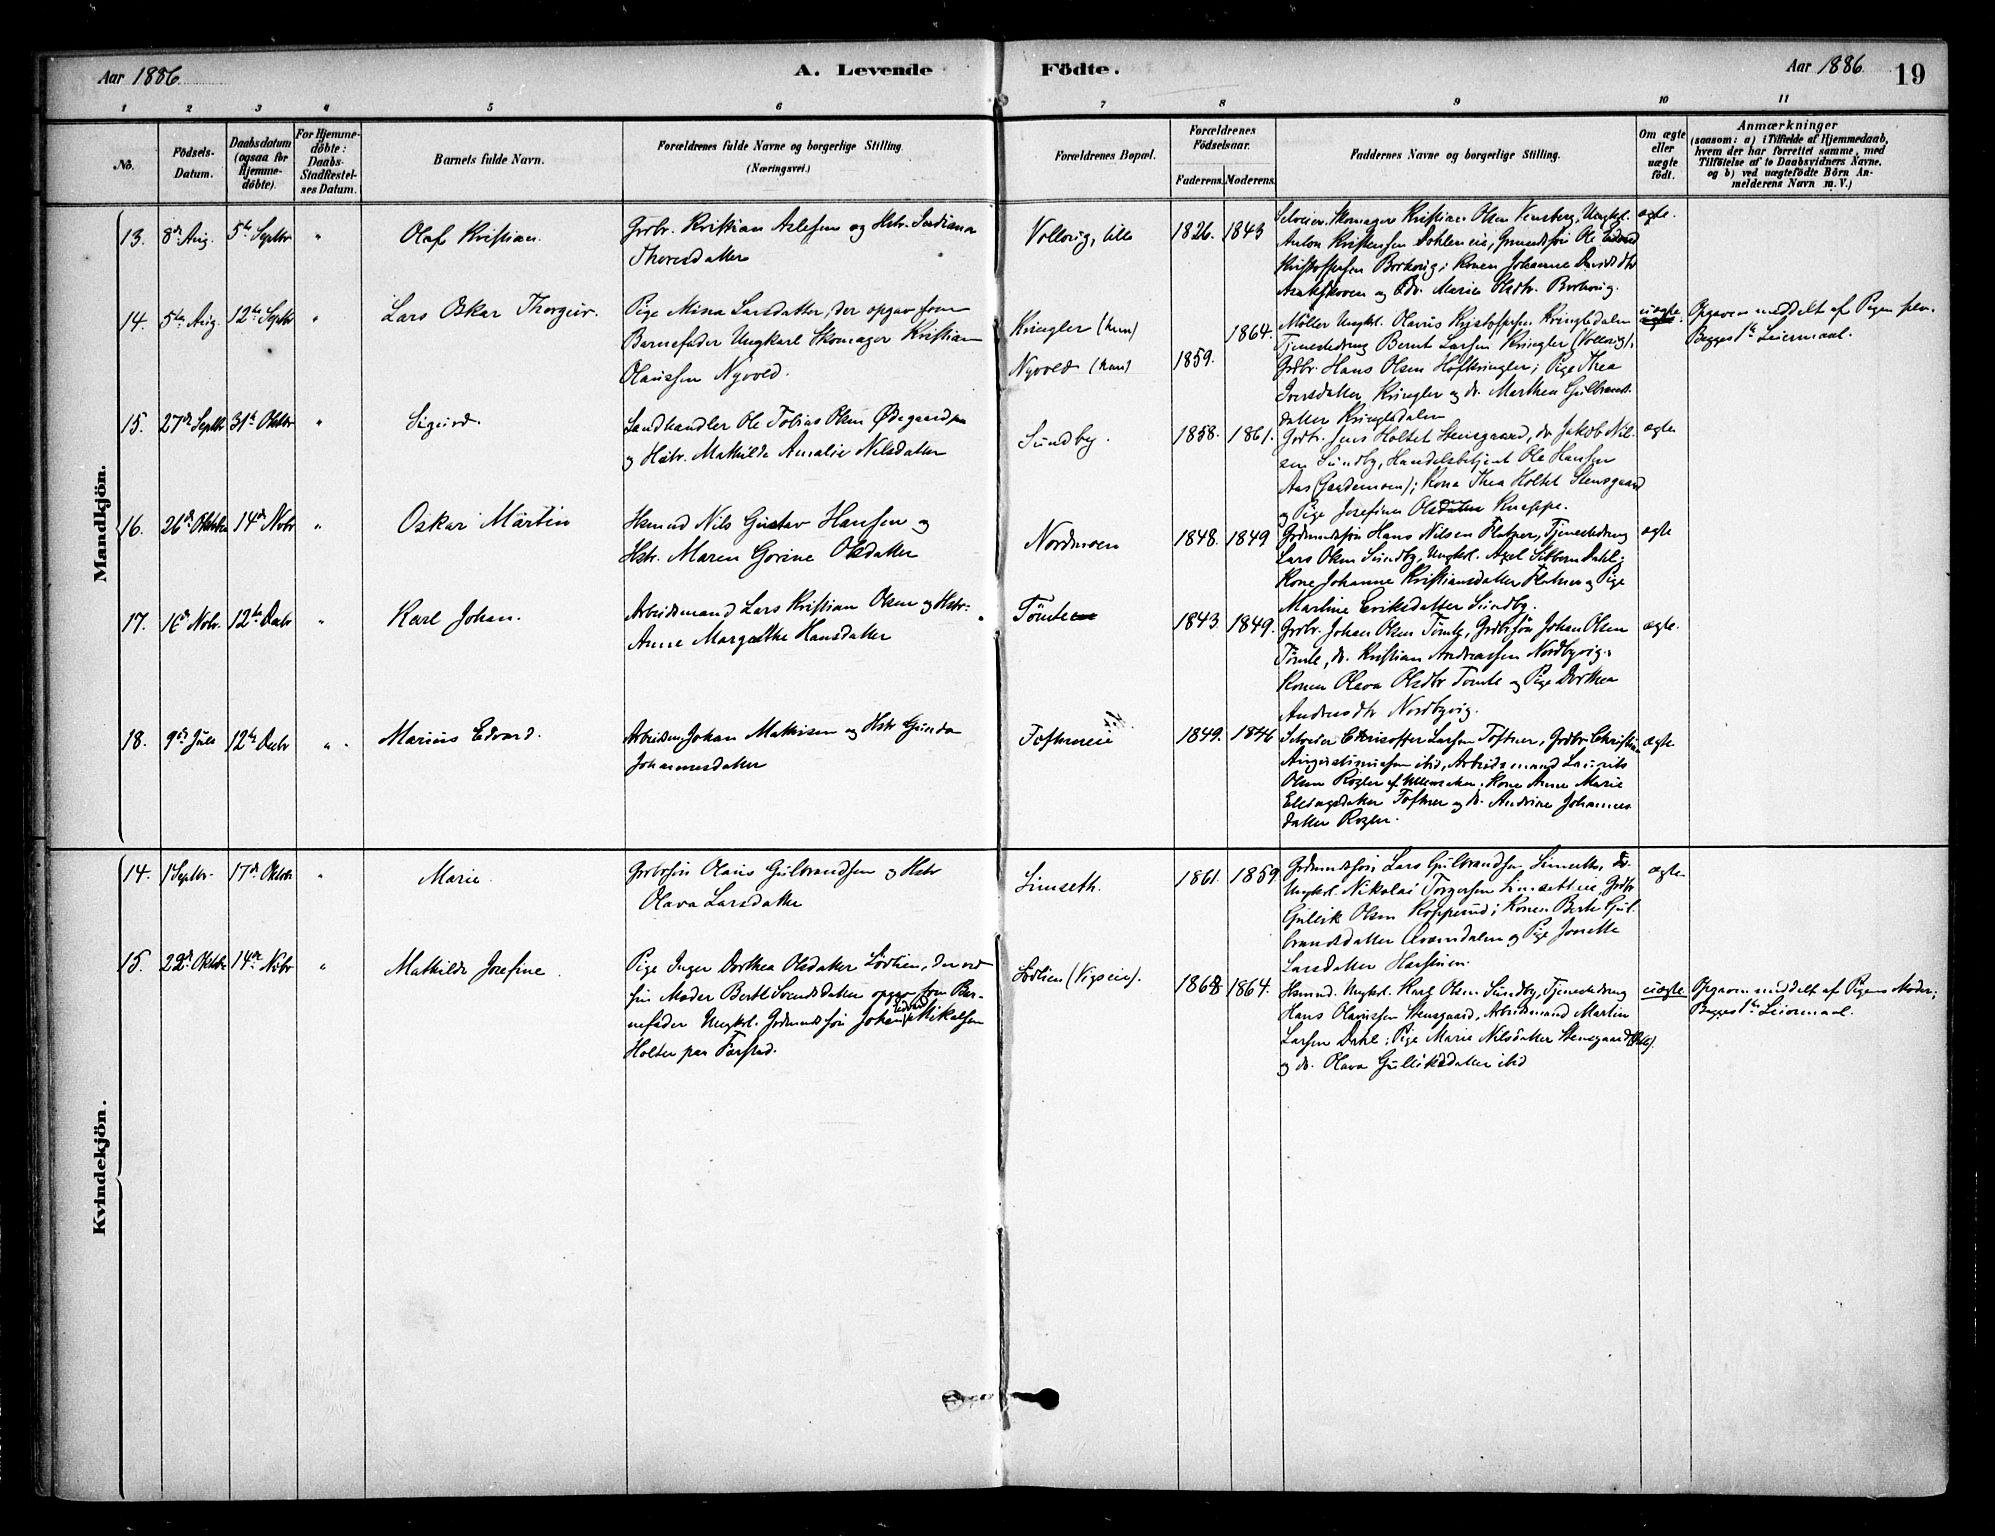 Aar 1886.
A. Levende Födte.
Aar 1886.
19
1 2 3 4 5 6 7 8 9 10 11
No.
Födsels-Datum.
Daabsdatum (ogsaa for Hjemme-döbte).
For Hjemme-döbte: Daabs-Stadfæstel-ses Datum.
Barnets fulde Navn.
Forældrenes fulde Navne og borgerlige Stilling.
(Næringsvei.)
Forældrenes Bopæl.
Forældrenes Födselsaar.
Faderens. Moderens.
Faddernes Navne og borgerlige Stilling.
Om ægte eller uægte födt.
Anmærkninger
(saasom: a) i Tilfælde af Hjemmedaab,
hvem der har forrettet samme, med
Tilföielse af to Daabsvidners Navne.
og b) ved uægtefödte Börn An-
melderens Navn m. V.)
Mandkjön.
13. 8de Aug. 5te Septbr "
Olaf Kristian.
Grbr. Kristian Aslesen og Hstr.
Thoresdatter
Vollorig, lille
1826. 1843
Selveier. Skomager Kristian Olsen Vensberg, Ungkl.
Anton Kristensen Dahleneie, Ole Edvard
Kristoffersen Borkorig; Konen Johanne
og Marie Olsdtr. Borkorig.
ægte.
14. 5te Aug. 12te Septbr "
Lars Oskar Thorgeir.
Pige Mina Larsdatter, der opgav som
Barnefader Ungkarl Skomager Kristian
Olaussen Nyvold.
Kringler (hun)
Nyvold (han)
1859. 1864.
Møller Ungkl. Olavus Kristoffersen Kringledalen
Tjenestedreng Bernt Larsen Kringler (Vollorig),
Grdbr. Hans Olsen Hofkringler; Pige Thea
Iversdatter Kringler og do. Marthea Gulbrands
datter Kringledalen
uægte.
Opgaven meddelt af Pigen selv.
Begges 1ste Leiermaal.
15. 27de Septbr 31te Oktbr "
Sigurd.
Landhandler Ole Tobias Olsen Ødegaard
og Hstr. Mathilde Amalie Nilsdatter
Sundby.
1858. 1861.
Grdbr. Jens Holtet Stensgaard, do Jakob Nil-
sen Sundby, Handelsbetjent Ole Hansen
Aas (Gardemoen); Kona Thea Holtet Stensgaard
og Pige Josefine Olsdatter Kneppe.
ægte
16. 26de Oktbr 14de Novbr "
Oskar Martin
Hsmnd Nils Gustav Hansen og
Hstr. Maren Gorine Olsdatter
Nordmoen
1848. 1849
Grdmandssøn Hans Nilsen Flatner, Tjenestedreng
Lars Olsen Sundby, Ungkl. Axel Dahl;
Kone Johanne Kristiansdatter Flatner og Pige
Martine Eriksdatter Sundby.
ægte
17. 16de Novbr. 12te Decbr "
Karl Johan.
Arbeidsmand Lars Kristian Olsen og Hstr:
Anne Margrethe Hansdatter
Tömte
1843 1849.
Grdbr. Johan Olsen Tömte, Grdbrsøn Johan Olsen
Tömte, do. Kristian Andreassen Nordbyvig;
Konen Olava Olsdtr Tömte og Pige Dorthea
Andersdtr Nordbyvig.
ægte.
18. 9de Juli 12te Decbr "
Marius Edvard.
Arbeidsm. Johan Mathisen og Hstr Gunda
Johannesdatter
Toftnereie
1849. 1846
Selveier Christoffer Larsen Toftner, Grdbr. Christian
Augustinussen ibid, Arbeidsmand Laurits
Olsen Rogler af Ullensaker; Kone Anne Marie
Ellingsdatter Toftner og do. Andrine Johannes
datter Rogler.
ægte
Kvindekjön.
14. 1 Septbr. 17de Oktbr "
Marie.
Grdbrsøn Olaus Gulbrandsen og Hstr
Olava Larsdatter
Limseth.
1861. 1859
Grdmandssøn Lars Gulbrandsen, do.
Ungkl. Nikolai Torgersen Limsetheie, Grdbr
Gullik Olsen Kopperud; Konen Berte Gul-
brandsdatter og Pige Josette
Larsdatter
ægte
15. 22de Oktbr 14de Novbr "
Mathilde Josefine.
Pige Inger Dorthea Olsdatter Lödlien, der ved
sin Moder Berte Svendsdatter opgav som Bar-
nefader Ungkl. Grdmandssøn Johan Edvard Mikalsen
Holter paa Farstad.
Lödlien (Vigseie).
1868 1864.
Hsmnd. Ungkl. Karl Olsen Sundby, Tjenestedreng
Hans Olaussen Stensgaard, Arbeidsmand Martin
Larsen Dahl; Pige Marie Nilsdatter Stensgaard
og do. Olava Gulliksdatter ibid
uægte
Opgaven meddelt af Pigens Moder;
Begges 1ste Leiermaal.